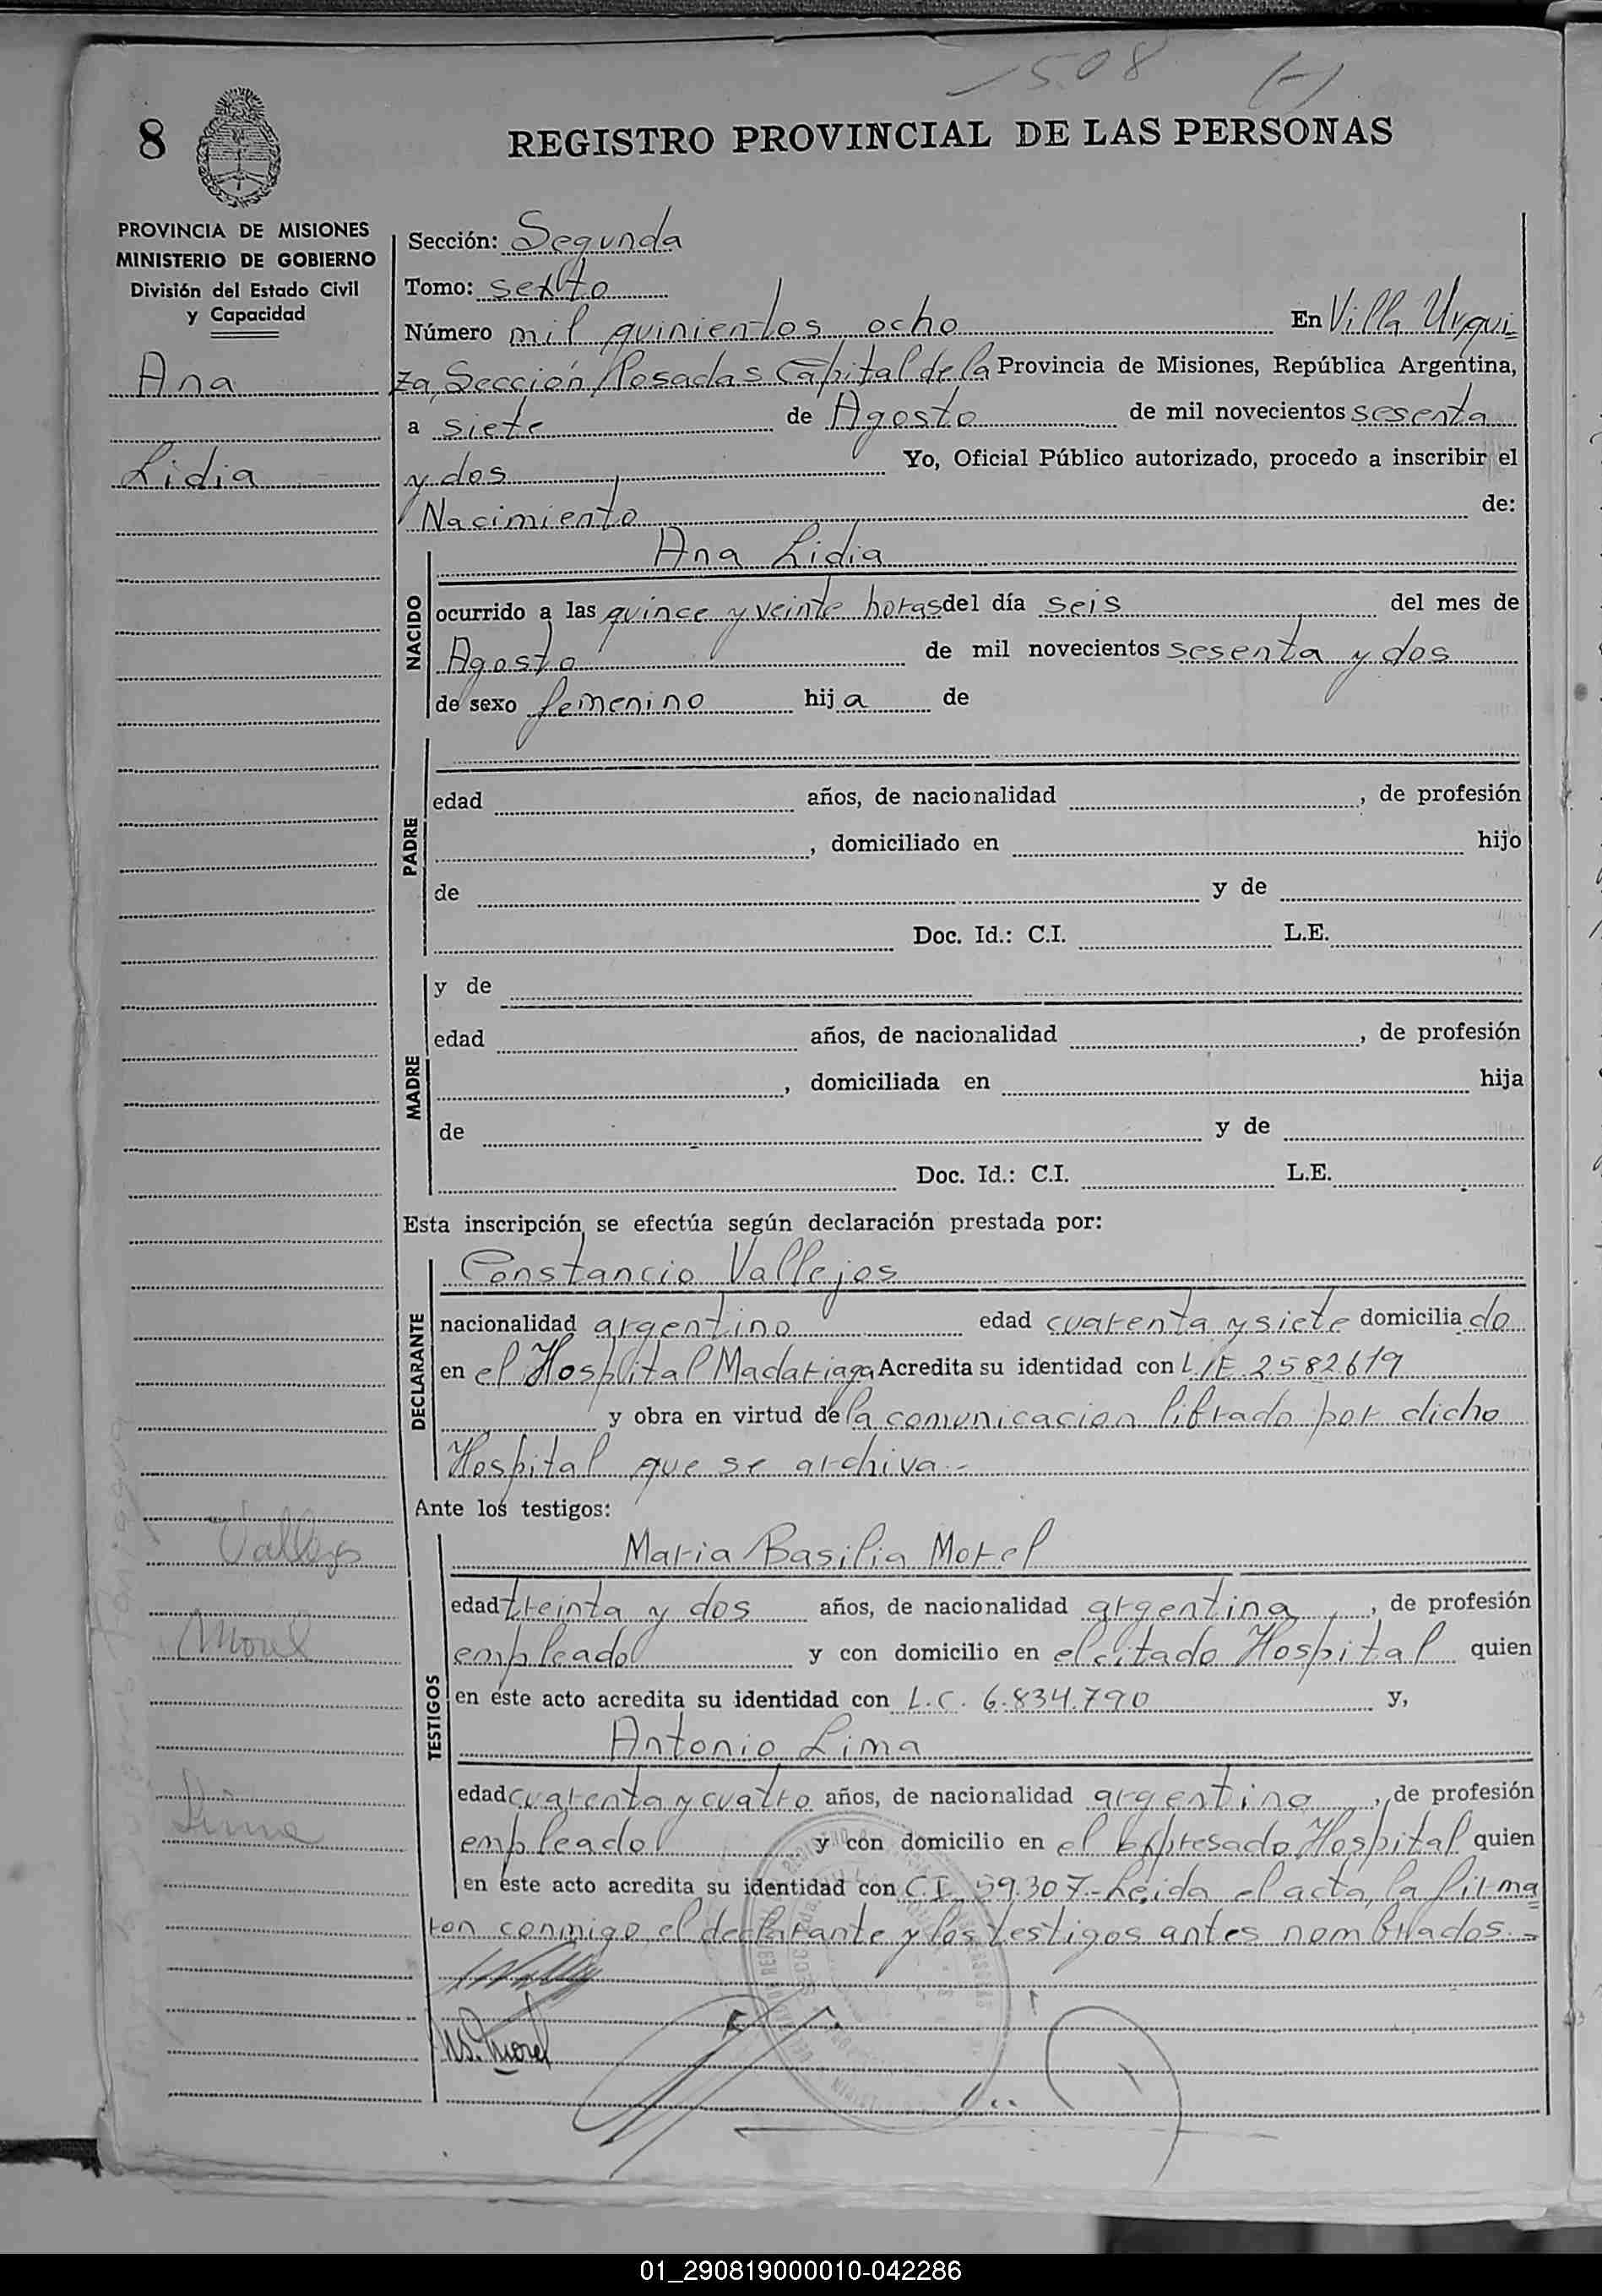 1508 (-)
8
REGISTRO PROVINCIAL DE LAS PERSONAS
PROVINCIA DE MISIONES
MINISTERIO DE GOBIERNO
División del Estado Civil
y Capacidad
Ana
Lidia
Sección: Segunda
Tomo: sexto
Número mil quinientos ocho En Villa Urqui=
za, Sección Posadas Capital de la Provincia de Misiones, República Argentina,
a siete de Agosto de mil novecientos sesenta
y dos Yo, Oficial Público autorizado, procedo a inscribir el
Nacimiento de:
NACIDO
Ana Lidia
ocurrido a las quince y veinte horas del día seis del mes de
Agosto de mil novecientos sesenta y dos
de sexo femenino hija de
PADRE
edad años, de nacionalidad , de profesión
, domiciliado en hijo
de y de
Doc. Id.: C.I. L.E.
MADRE
y de
edad años, de nacionalidad , de profesión
, domiciliada en hija
de y de
Doc. Id.: C.I. L.E.
Esta inscripción se efectúa según declaración prestada por:
DECLARANTE
Constancio Vallejos
nacionalidad argentino edad cuarenta y siete domiciliado
en el Hospital Madariaga Acredita su identidad con L/E. 2582619
y obra en virtud de la comunicacion librado por dicho
Hospital que se archiva.-
Ante los testigos:
Vallejos
Morel
Lima
TESTIGOS
Maria Basilia Morel
edad treinta y dos años, de nacionalidad argentina, de profesión
empleado y con domicilio en el citado Hospital quien
en este acto acredita su identidad con L.C. 6.834.790 y,
Antonio Lima
edad cuarenta y cuatro años, de nacionalidad argentino, de profesión
empleado y con domicilio en el expresado Hospital quien
en este acto acredita su identidad con C.I. 59.307- Leida el acta, la firma
ron conmigo el declarante y los testigos antes nombrados.-
Morel
01_290819000010-042286